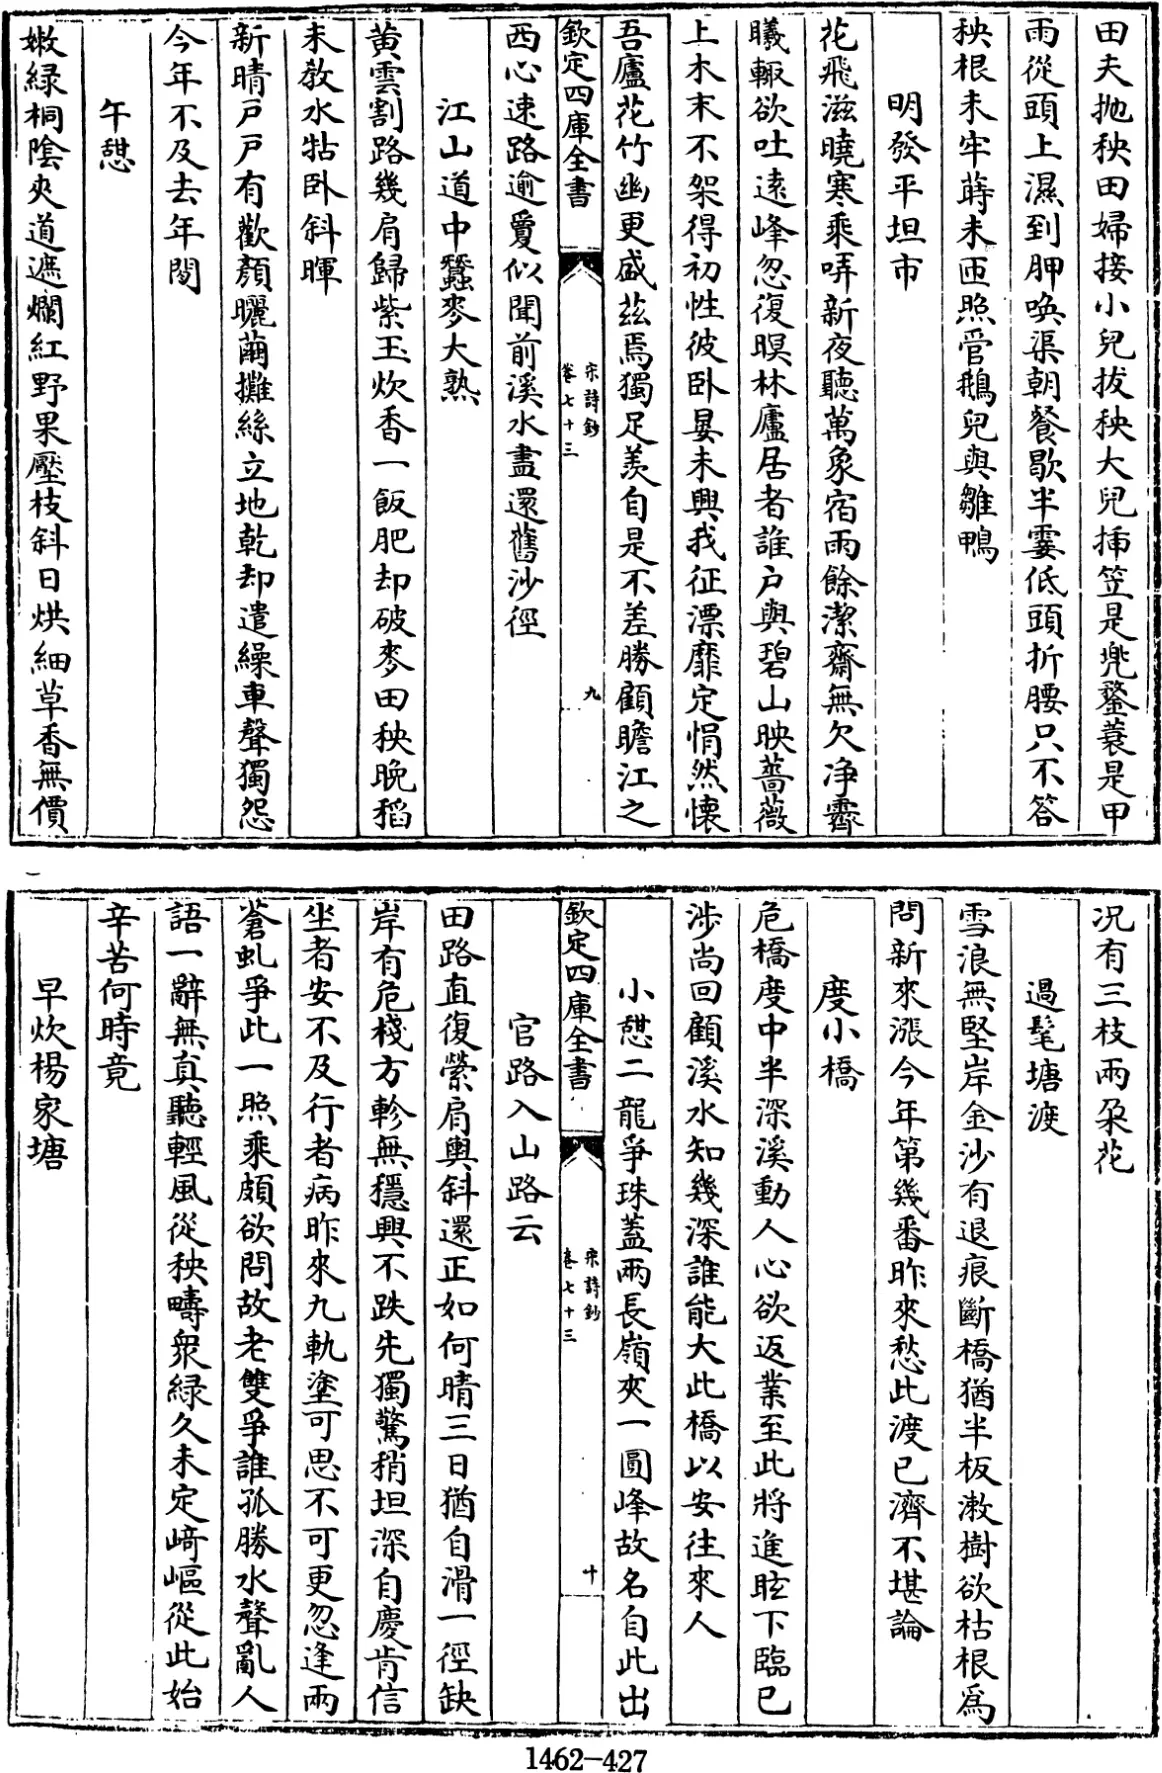 田夫抛秧田婦接小兒拔秧大兒揷笠是兠鍪蓑是甲
雨從頭上濕到胛喚渠朝餐歇半霎低頭折腰只不答
秧根未牢蒔未匝照管鵝兒與雛鴨
明發平坦市
花飛滋曉寒乘哢新夜聽萬象宿雨餘潔齋無欠净霽
曦輙欲吐逺峰忽復暝林廬居者誰户與碧山映薔薇
上木末不架得初性彼卧晏未興我征漂靡定悁然懐
吾廬花竹幽更盛兹焉獨足羨自是不差勝顧瞻江之
欽定四庫全書
宋詩鈔
卷七十三
九
西心速路逾敻似聞前溪水盡還舊沙徑
江山道中蠶麥大熟
黄雲割路幾肩歸紫玉炊香一飯肥却破麥田秧晚稻
未敎水牯卧斜暉
新晴户户有歡顔曬繭攤絲立地乾却遣繰車聲獨怨
今年不及去年閒
午憇
嫩緑桐陰夾道遮爛紅野果壓枝斜日烘細草香無價
况有三枝兩朶花
過髦塘渡
雪浪無堅岸金沙有退痕斷橋猶半板漱樹欲枯根爲
問新來漲今年第幾番昨來愁此渡已濟不堪論
度小橋
危橋度中半深溪動人心欲返業至此將進眩下臨已
涉尚回顧溪水知幾深誰能大此橋以安往來人
小憇二龍爭珠葢兩長嶺夾一圓峰故名自此出
欽定四庫全書
宋詩鈔
卷七十三
十
官路入山路云
田路直復縈肩輿斜還正如何晴三日猶自滑一徑缺
岸有危棧方軫無穩興不跌先獨驚稍坦深自慶肯信
坐者安不及行者病昨來九軌塗可思不可更忽逢兩
蒼虬爭此一照乘頗欲問故老雙爭誰孤勝水聲亂人
語一辭無真聽輕風從秧疇衆緑久未定崎嶇從此始
辛苦何時竟
早炊楊家塘
1462-427